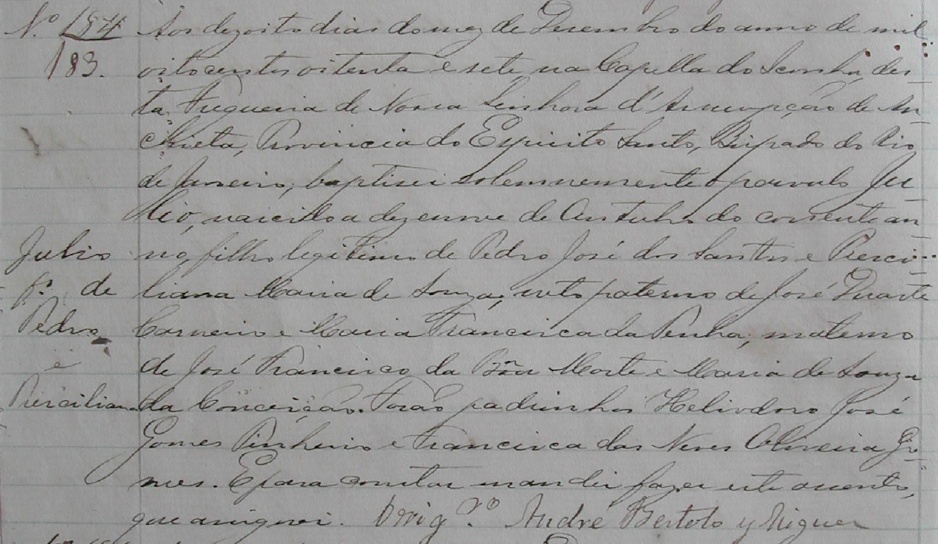 Nº 154 Aos dezoito dias do mez de Desembro do anno de mil
183. oitocentos oitenta e sete na Capella do des
ta Freguezia de Nossa Senhora d'Assumpção de An
chieta, Provincia do Espirito Santo, Bispado do Rio
de Janeiro, baptisei solemnemente o parvulo Ju
lio, nascido a dezenove de Outubro do corrente an
Julio no filho legitimo de Pedro José dos Santos e Presci
fº. de liana Maria de Souza, neto paterno de José Duarte
Pedro Carneiro e Maria Francisca da Penha, materno
e de José Francisco da Bôa Morte e Maria de Souza
Presciliana da Conceição. Forão padrinhos Heliodoro José
Gomes Pinheiro e Francisca das Neves Oliveira Go
mes. E para constar mandei fazer este assento,
que assignei. André Bertolo y